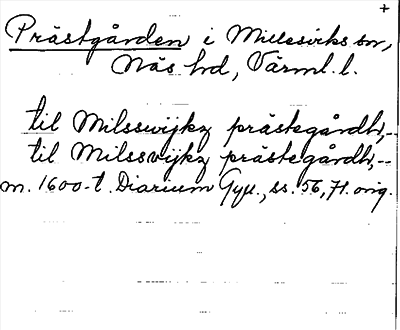 +
Prästgården i Millesviks sn,
Näs hd, Värml. l.
til Milsswijkz prästegårdh,--
til Milssvijkz prästegårdh,--
m. 1600-t. Diarium Gyll., ss. 56, 71. orig.